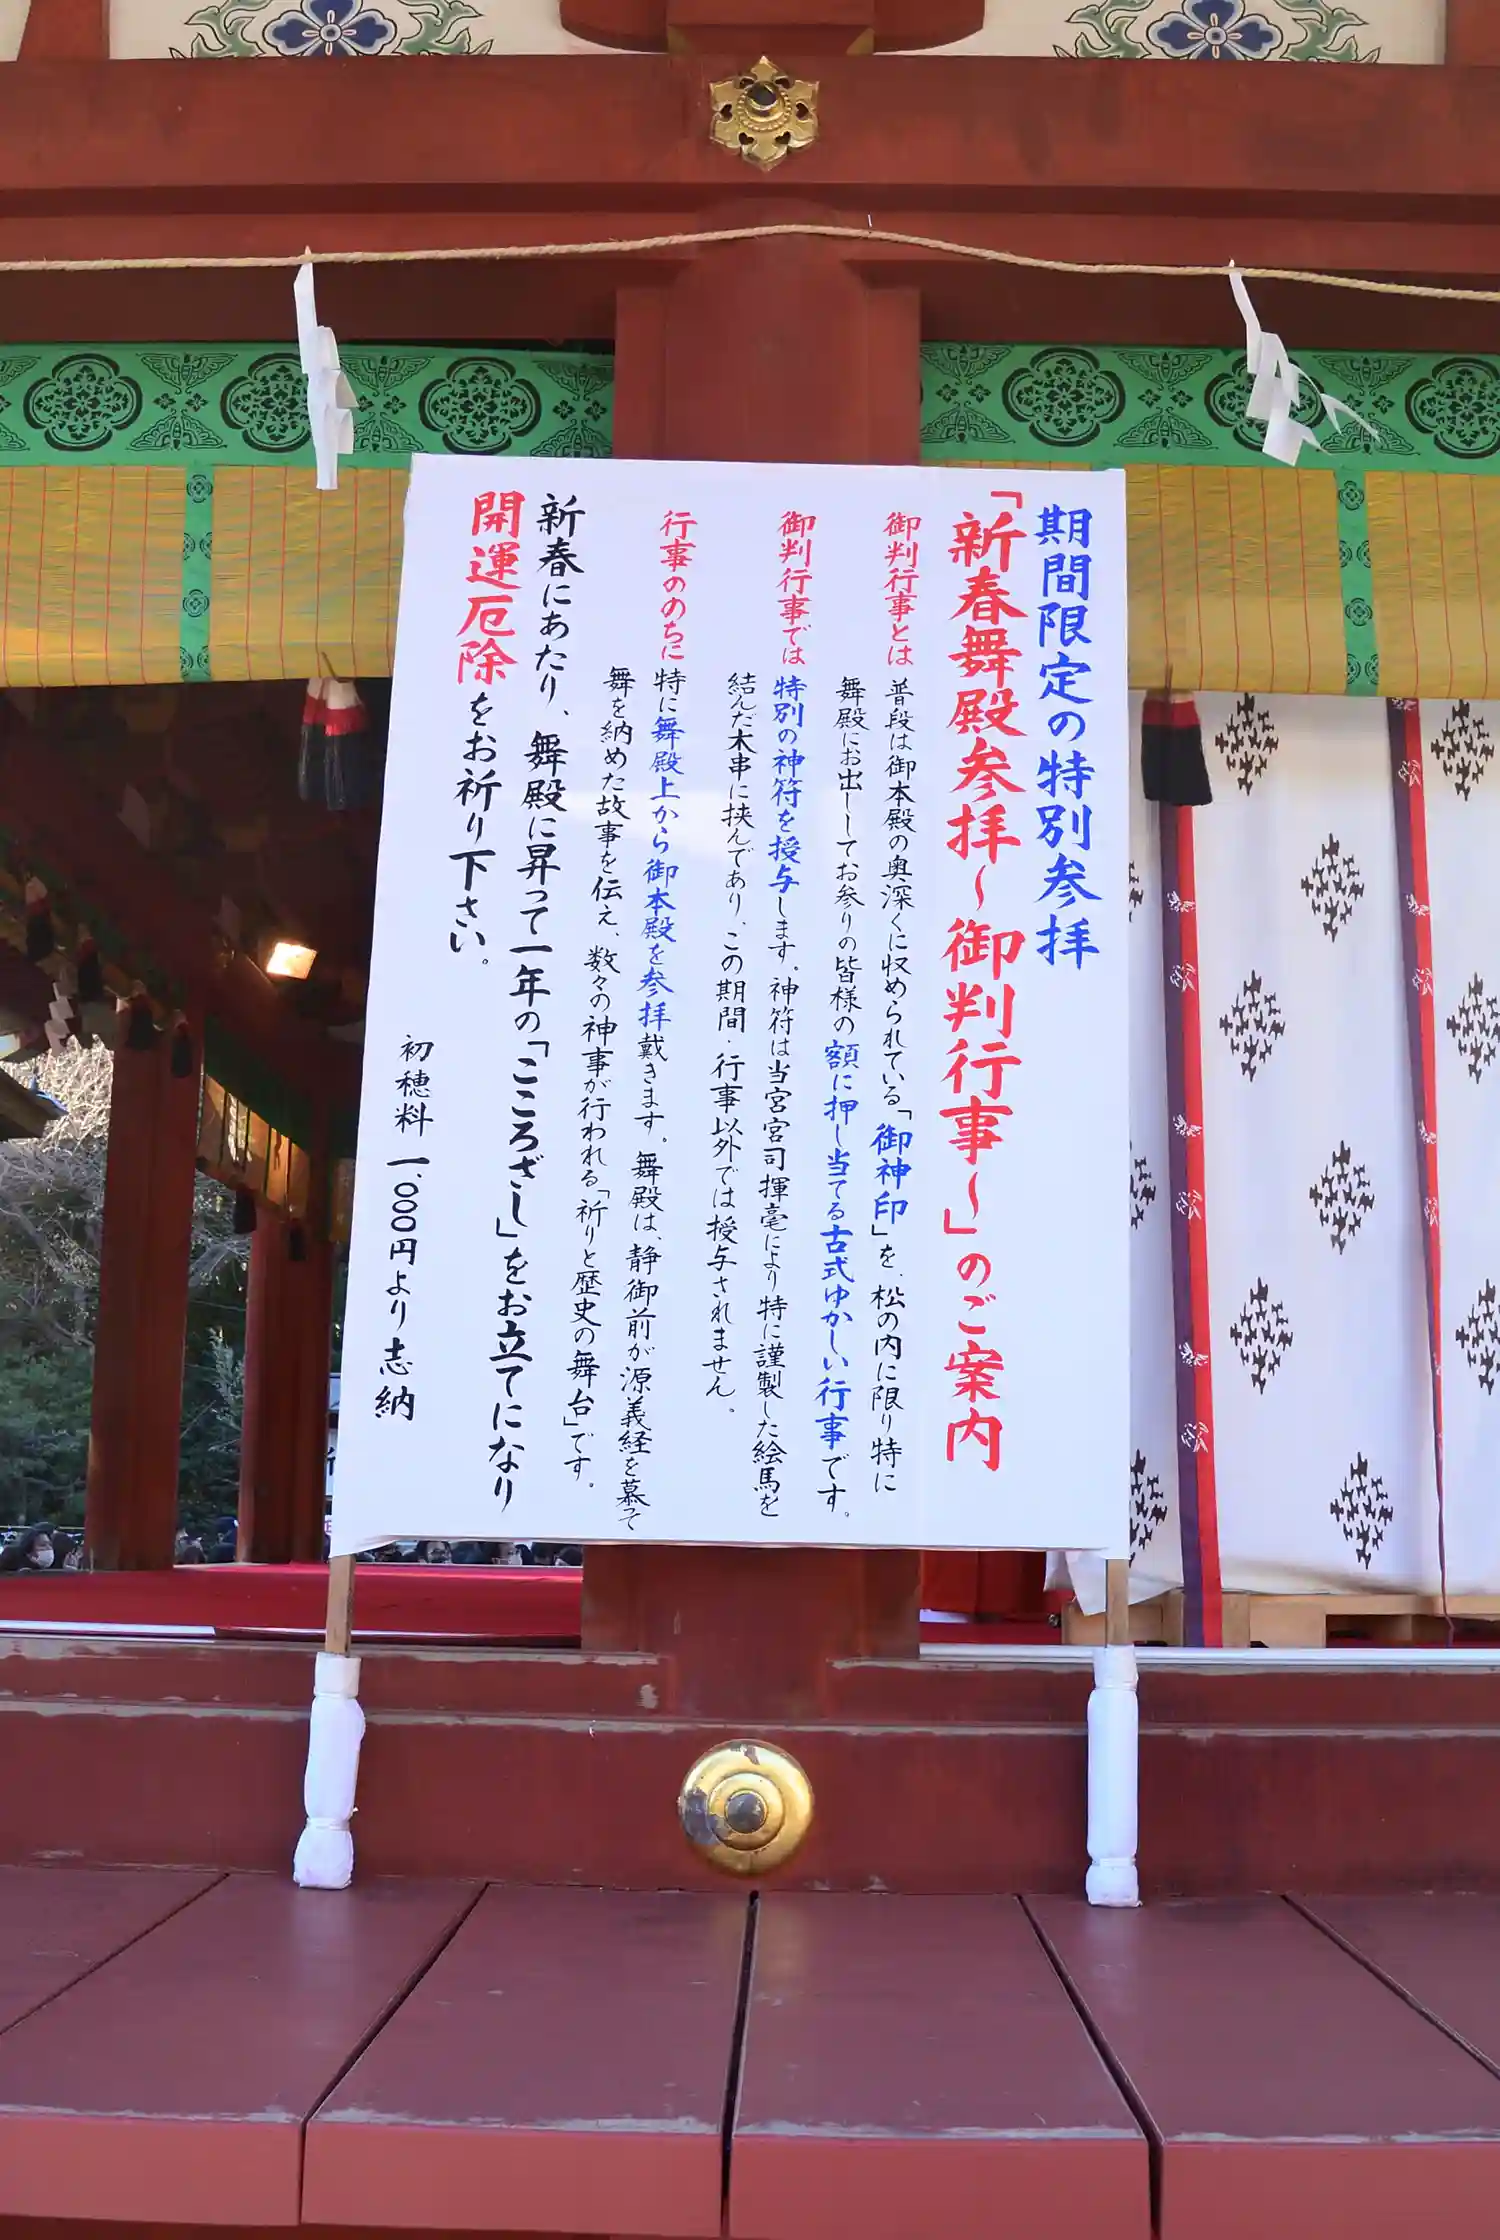 期間限定の特別参拝
「新春舞殿参拝～御判行事～」のご案内
御判行事とは　普段は御本殿の奥深くに収められている「御神印」を、松の内に限り特に
舞殿にお出ししてお参りの皆様の額に押し当てる古式ゆかしい行事です。
御判行事では　特別の神符を授与します。神符は当宮宮司揮毫により特に謹製した絵馬を
結んだ木串に挟んであり、この期間・行事以外では授与されません。
行事ののちに　特に舞殿上から御本殿を参拝戴きます。舞殿は、静御前が源義経を慕って
舞を納めた故事を伝え、数々の神事が行われる「祈りと歴史の舞台」です。
新春にあたり、舞殿に昇って一年の「こころざし」をお立てになり
開運厄除をお祈り下さい。
初穂料　一、〇〇〇円より志納